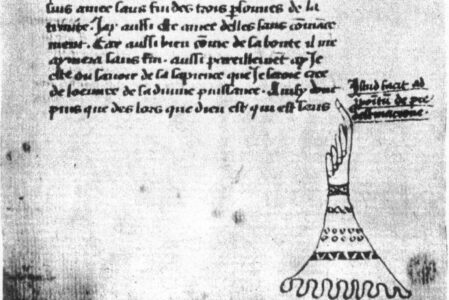 suis amee sans fin des trois personnes de la
trinite. Jay aussi este amee delles sans comance
ment. Car aussi bien come de sa bonte il me
aymera sans fin. aussi pareillement ay Je
este du savoir de sa sapience que Je seroie cree
de loeuvre de la divine puissance. Ainsy donc
puis que des lors que dieu est qui est sans
Istud facit ad
de pre
destinacione.